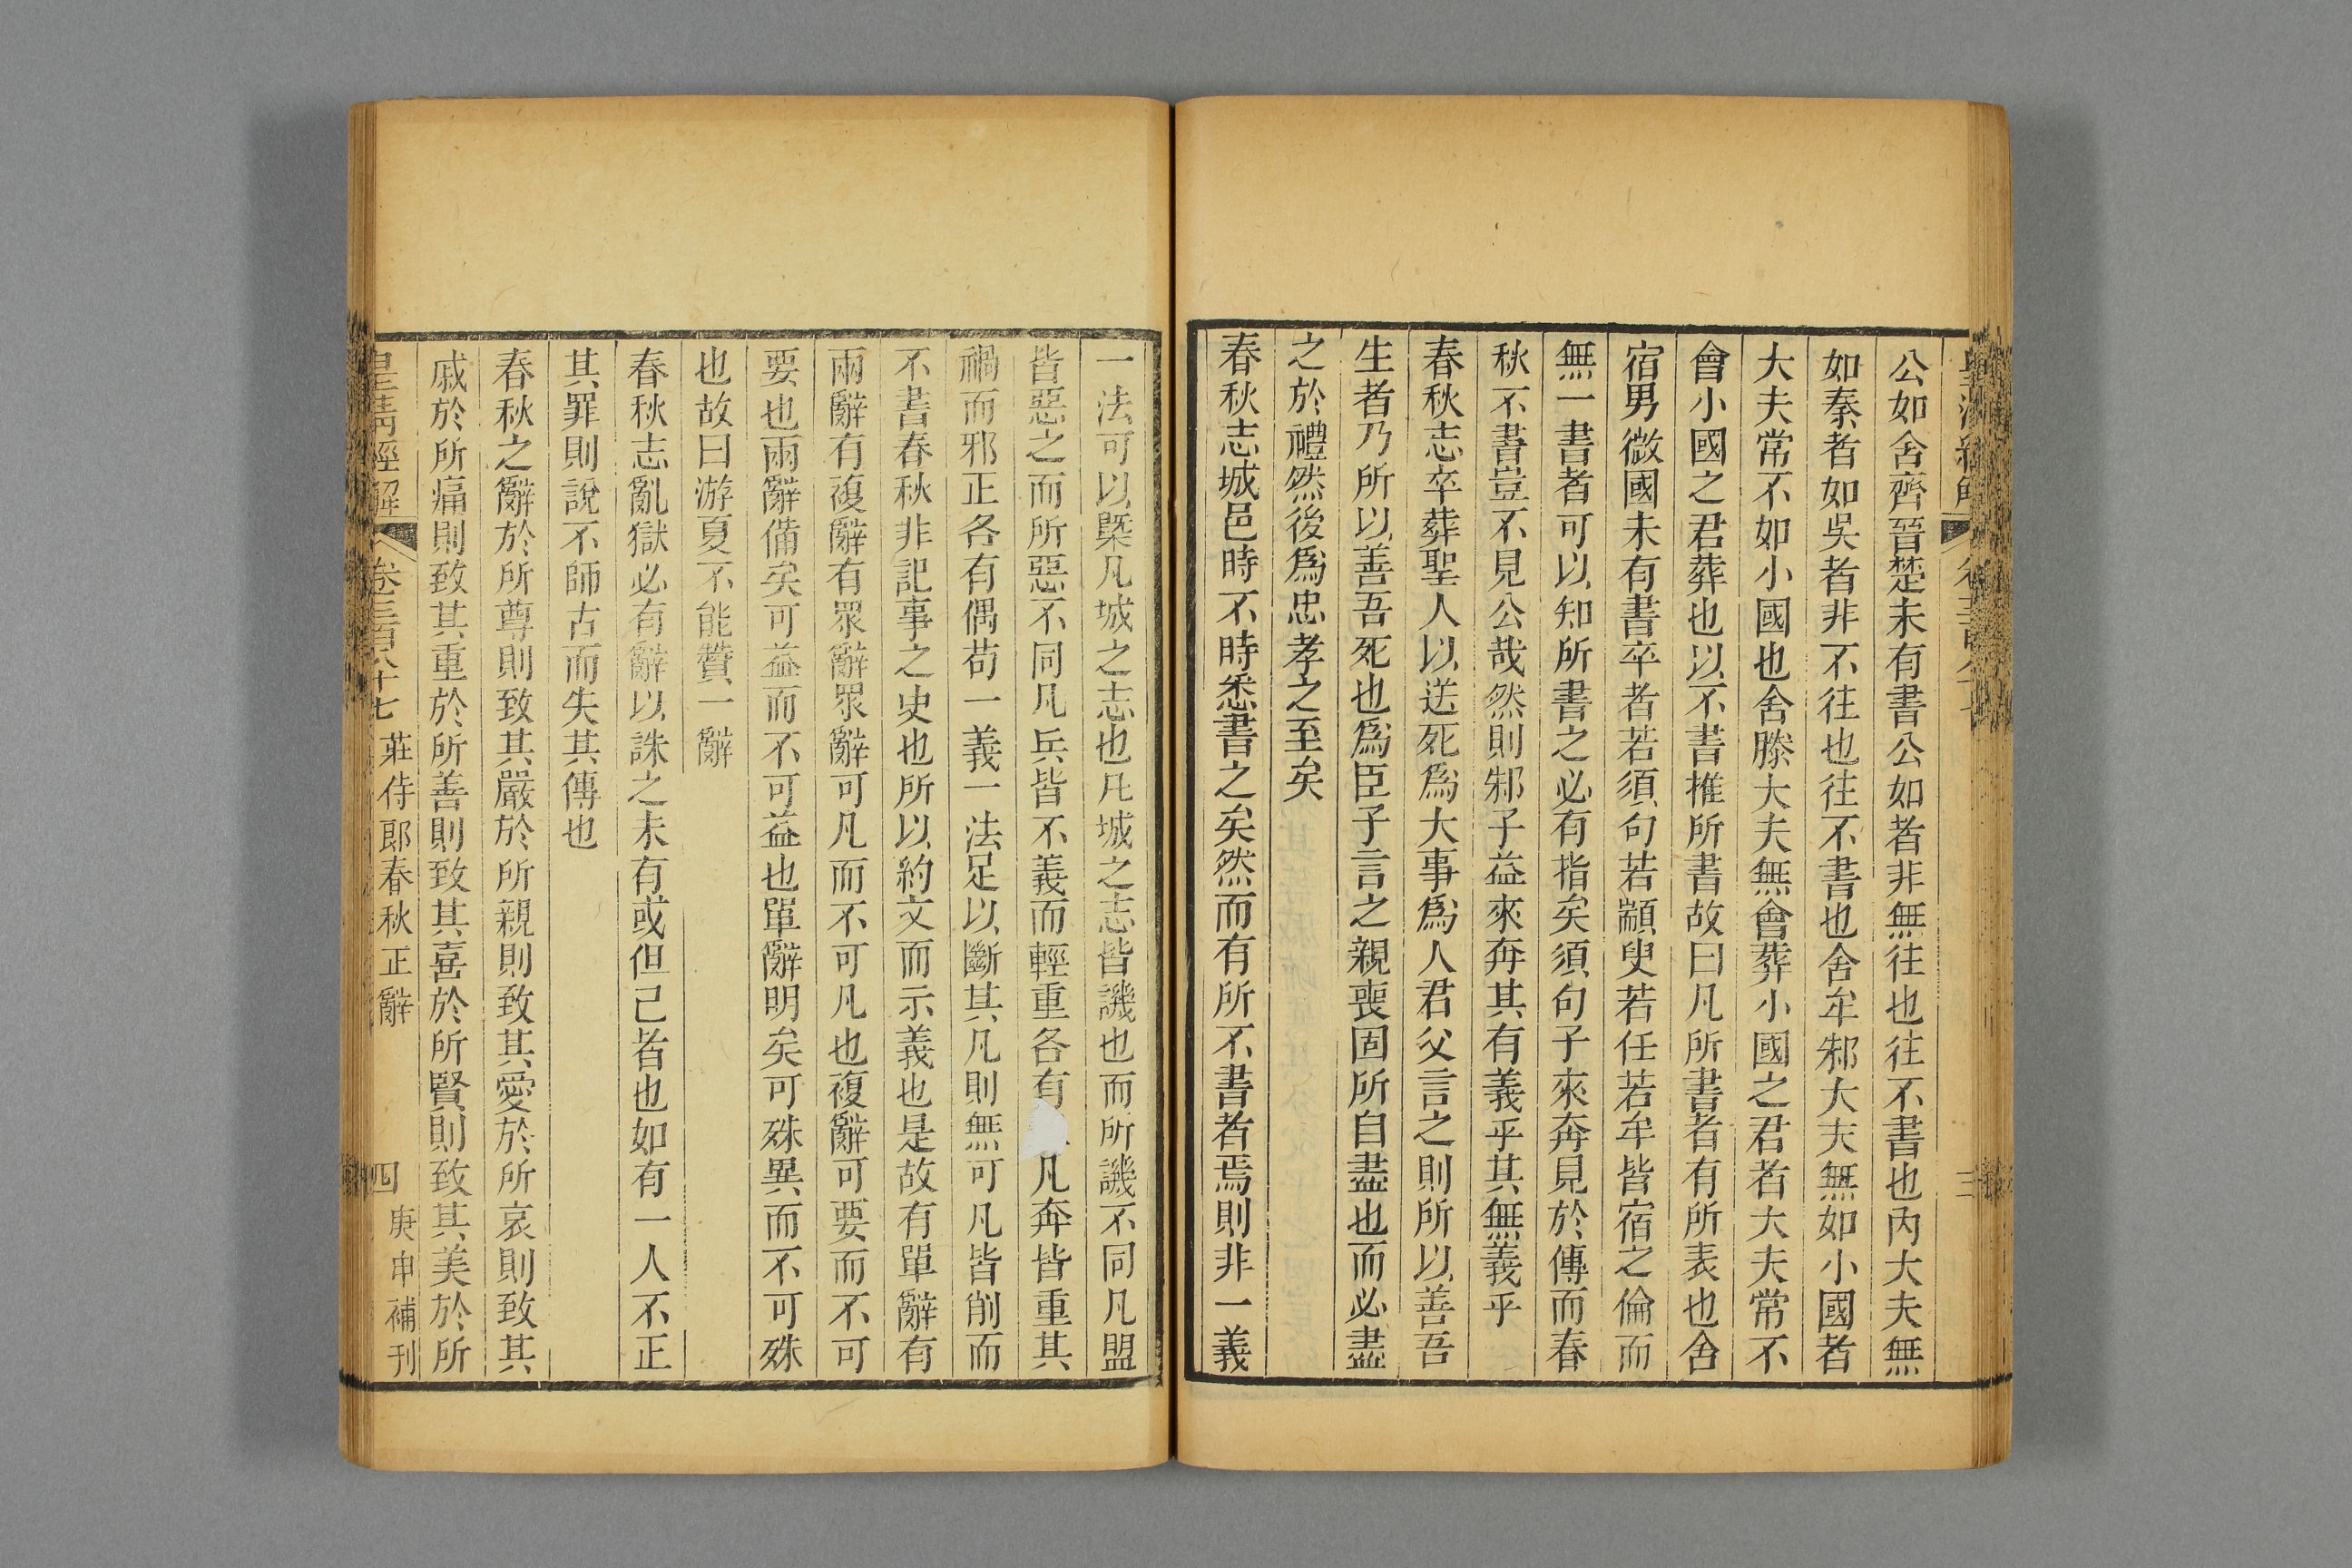 公如舍齊晉楚未有書公如者非無往也往不書也內大夫無
如秦者如吳者非不往也往不書也舍牟邾大夫無如小國者
大夫常不如小國也舍滕大夫無會葬小國之君者大夫常不
會小國之君葬也以不書推所書故曰凡所書者有所表也舍
宿男微國未有書卒者若須句若顓臾若任若牟皆宿之倫而
無一書者可以知所書之必有指矣須句子來奔見於傳而春
秋不書豈不見公哉然則邾子益來奔其有義乎其無義乎
春秋志卒葬聖人以送死為大事為人君父言之則所以善吾
生者乃所以善吾死也為臣子言之親喪固所自盡也而必盡
之於禮然後為忠孝之至矣
春秋志城邑時不時悉書之矣然而有所不書者焉則非一義
一法可以槩凡城之志也凡城之志皆譏也而所譏不同凡盟
皆惡之而所惡不同凡兵皆不義而輕重各有凡奔皆重其
禍而邪正各有偶苟一義一法足以斷其凡則無可凡皆削而
不書春秋非記事之史也所以約文而示義也是故有單辭有
兩辭有複辭有眾辭眾辭可凡而不可凡也複辭可要而不可
要也兩辭備矣可益而不可益也單辭明矣可殊異而不可殊
也故曰游夏不能贊一辭
春秋志亂獄必有辭以誅之未有或但己者也如有一人不正
其罪則說不師古而失其傳也
春秋之辭於所尊則致其嚴於所親則致其愛於所哀則致其
戚於所痛則致其重於所善則致其喜於所賢則致其美於所
皇清經解 卷三百八十七 莊侍郎春秋正辭 四 庚申補刊